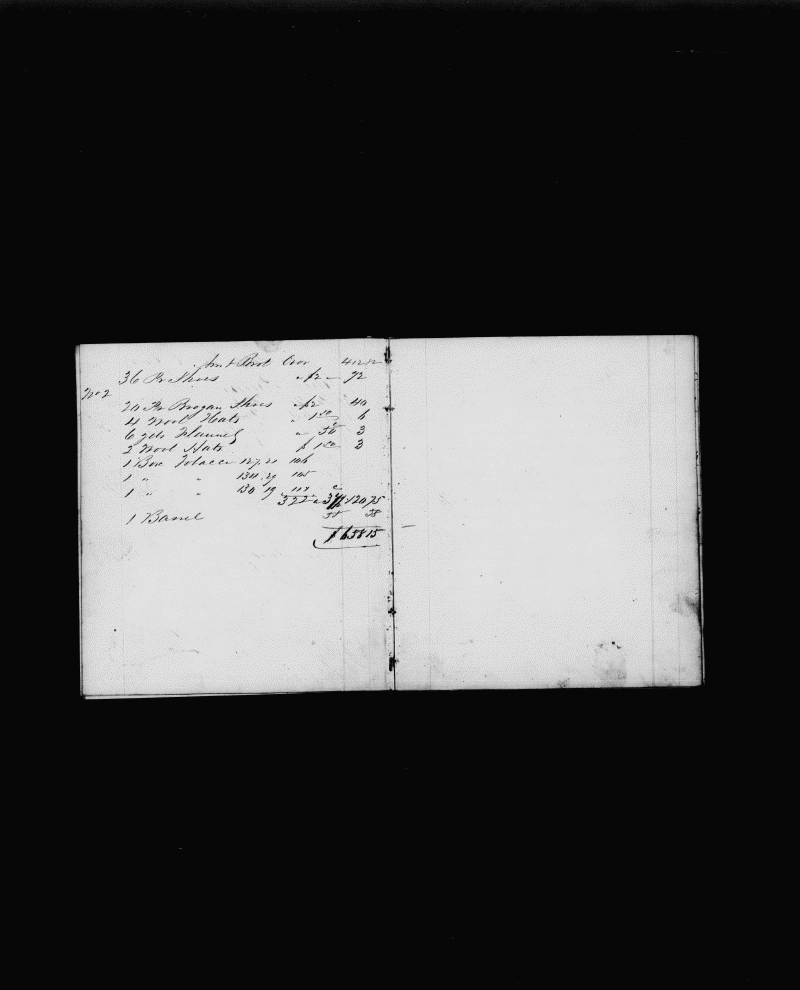 Amt Brot Over 412 82
36 Pr Shoes " $2 – 72
No 2
20 Pr Brogan Shoes " $2 40
4 Wool Hats " 1 50 6
6 yds Flannel " 50 3
2 Wool Hats $ 1 50 3
1 Box Tobacco 127. 21 106
1 " " 134. 29 105
1 " " 130 19 111
322 " 37½ 120 75
1 Barrel 58 58
$ 658 15